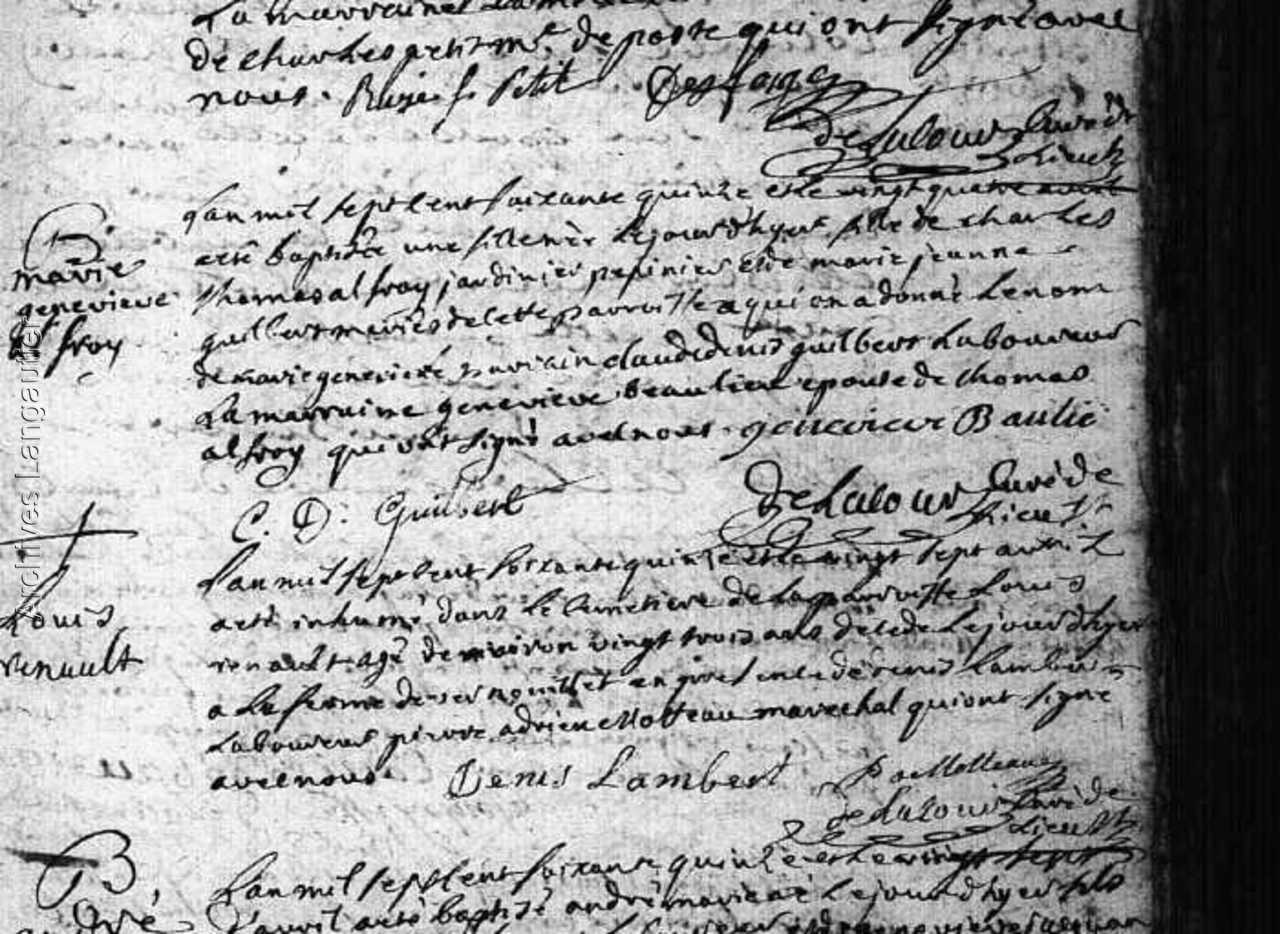 La marraine
de charles petit me. de poste qui ont signé avec
nous. Petit Desfonge
Delalour Curé de
Lieux
B
marie
genevieve
alfroy
Lan mil sept cent soixante quinze et le vingt quatre avril
a eté baptisée une fille née le jour d'hyer fille de charles
thomas alfroy jardinier pepinier et de marie jeanne
guilbert mariés de cette parroisse a qui on a donné le nom
de marie genevieve parain claude denis guilbert Laboureur
La marraine genevieve beaulieu epouse de thomas
alfroy qui ont signé avec nous. genevieve Baulie
C. D. Guilbert Delalour Curé de
Lieux.
Louis
renault
Lan mil sept cent soixante quinze et le vingt sept avril
a eté inhumé dans le cemetiere de la parroisse Louis
renault agé denviron vingt trois ans décédé le jour d'hyer
a la ferme de vernouillet en presence de denis Lambert
Laboureur pierre adrien Motteau marechal qui ont signé
avec nous. Denis Lambert P a Motteau
Delalour Curé de
Lieux
B
André
Lan mil sept cent soixante quinze et le vingt sept
d'avril a eté baptisé andré marie né le jour d'hyer fils
Archives Langautier